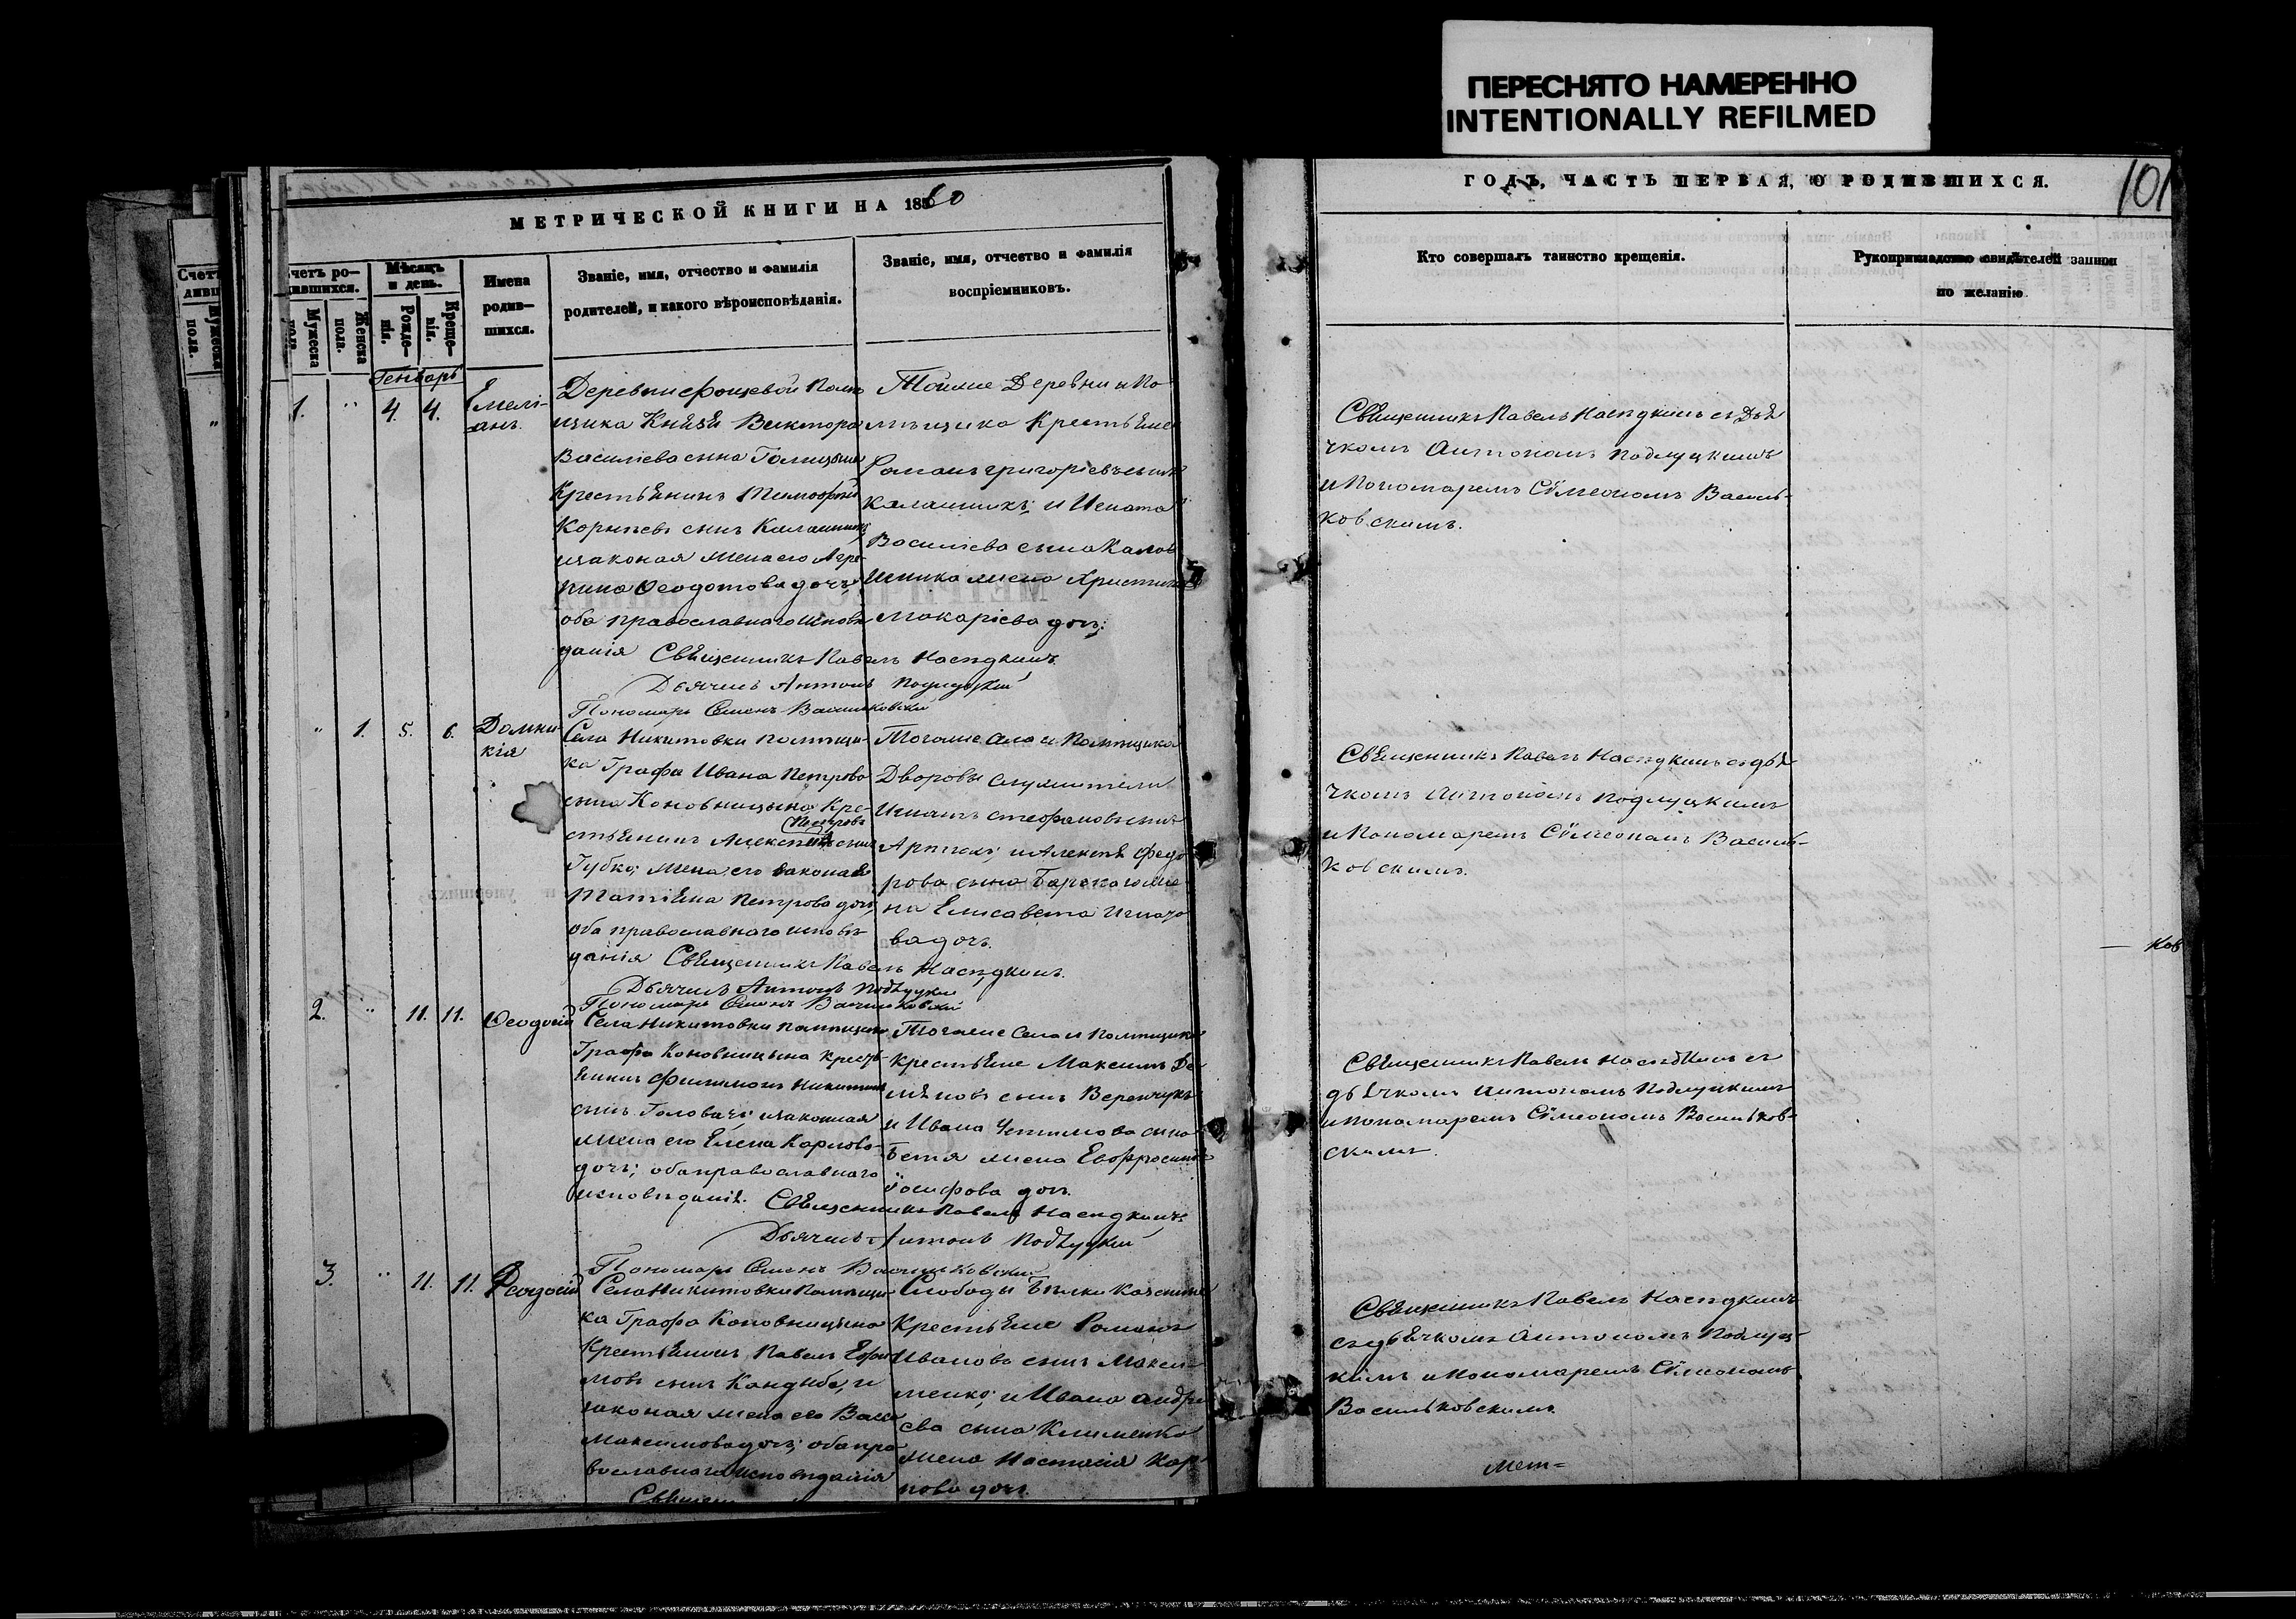 ПЕРЕСНЯТО НАМЕРЕННО
INTENTIONALLY REFILMED
МЕТРИЧЕСКОЙ КНИГИ НА 1860
ГОДЪ, ЧАСТЬ ПЕРВАЯ, О РОДИВШИХСЯ.
101
Счетъ ро-
дившихся.
Мужеска
пола.
Женска
пола.
Мѣсяцъ
и день.
Рожде-
нія.
Креще-
нія.
Имена
родив-
шихся.
Званіе, имя, отчество и фамилія
родителей, и какого вѣроисповѣданія.
Званіе, имя, отчество и фамилія
воспріемниковъ.
Кто совершалъ таинство крещенія.
Рукоприкладство свидѣтелей записи
по желанію
Генварь
1. " 4. 4.
Емелі-
анъ.
Деревни помѣ
щика Князя Виктора
Василіева сына Голицына
Крестьянинъ Тимофей
Корнѣевъ сынъ Калашникъ
изаконая жена его Агри-
пина Ѳеодотова дочь
оба православнаго исповѣ
данія Священникъ Павелъ Насѣдкинъ
Дьячекъ Антонъ Подлуцкій
Пономарь Семенъ Васильковскій
Тойже Деревни и по-
мѣщика Крестьяне
Романъ Григорьевъ сынъ
Калашникъ; и Игната
Василіева сына Калаш
ника жена Христина
Макарієва дочь:
Священникъ Павелъ Насѣдкинъ съ Дья
чкомъ Антономъ Подлуцкимъ
и Пономаремъ Сѵмеономъ Василь-
ковскимъ.
" 1. 5. 6.
Домни-
кія
Села Никитовки помѣщи-
ка Графа Ивана Петрова
сына Коновницына Кре-
Петровъ
стьянинъ Алексѣй сынъ
Губка; жена его законая
Татіяна Петрова дочь,
оба православнаго исповѣ-
данія Священникъ Павелъ Насѣдкинъ.
Дьячекъ Антонъ Подлуцкій
Пономарь Семенъ Васильковскій
Тогоже села и Помѣщика
Дворовы служители
Игнатъ Стефановъ сынъ
и Алексѣя Федо
рова сына же
на Елисавета Игнато
ва дочь.
Священникъ Павелъ Насѣдкинъ съ дья
чкомъ Антономъ Подлуцкимъ
и Пономаремъ Сѵмеономъ Василь-
ковскимъ.
Ков
2. " 11. 11.
Ѳеодосій
Села Никитовки помѣщика
Графа Коновницына Кресть-
янинъ Филимонъ Никитинъ
сынъ Головачь; изаконная
жена его Елена Карпова
дочь; оба православнаго
исповѣданія. Священникъ Павелъ Насѣдкинъ
Дьячекъ Антонъ Подлуцкій
Пономарь Семенъ Васильковскій
Тогоже Села и помѣщика
крестьяне Максимъ Де-
мяновъ сынъ Веренчукъ
и Ивана сына
жена Евфросинія
Іосифова дочь.
Священникъ Павелъ Насѣдкинъ съ
дьячкомъ Антономъ Подлуцкимъ
и пономаремъ Сѵмеономъ Васильков-
скимъ.
3. " 11. 11.
Ѳеодосій
Села Никитовки Помѣщи
ка Графа Коновницына
Крестьянинъ Павелъ Ефи
мовъ сынъ Кандыба, и
законая жена его Васса
Максимова дочь; оба пра-
вославнаго исповѣданія
Священ
Слободы Бѣлки Казенные
Крестьяне Романъ
Ивановъ сынъ Макси-
менко; и Ивана Андре
ева сына Клименка
жена Настасія Кар-
пова дочь.
Священникъ Павелъ Насѣдкинъ
съ дьячкомъ Антономъ Подлуц-
кимъ и пономаремъ Сѵмеономъ
Васильковскимъ.
Мет=